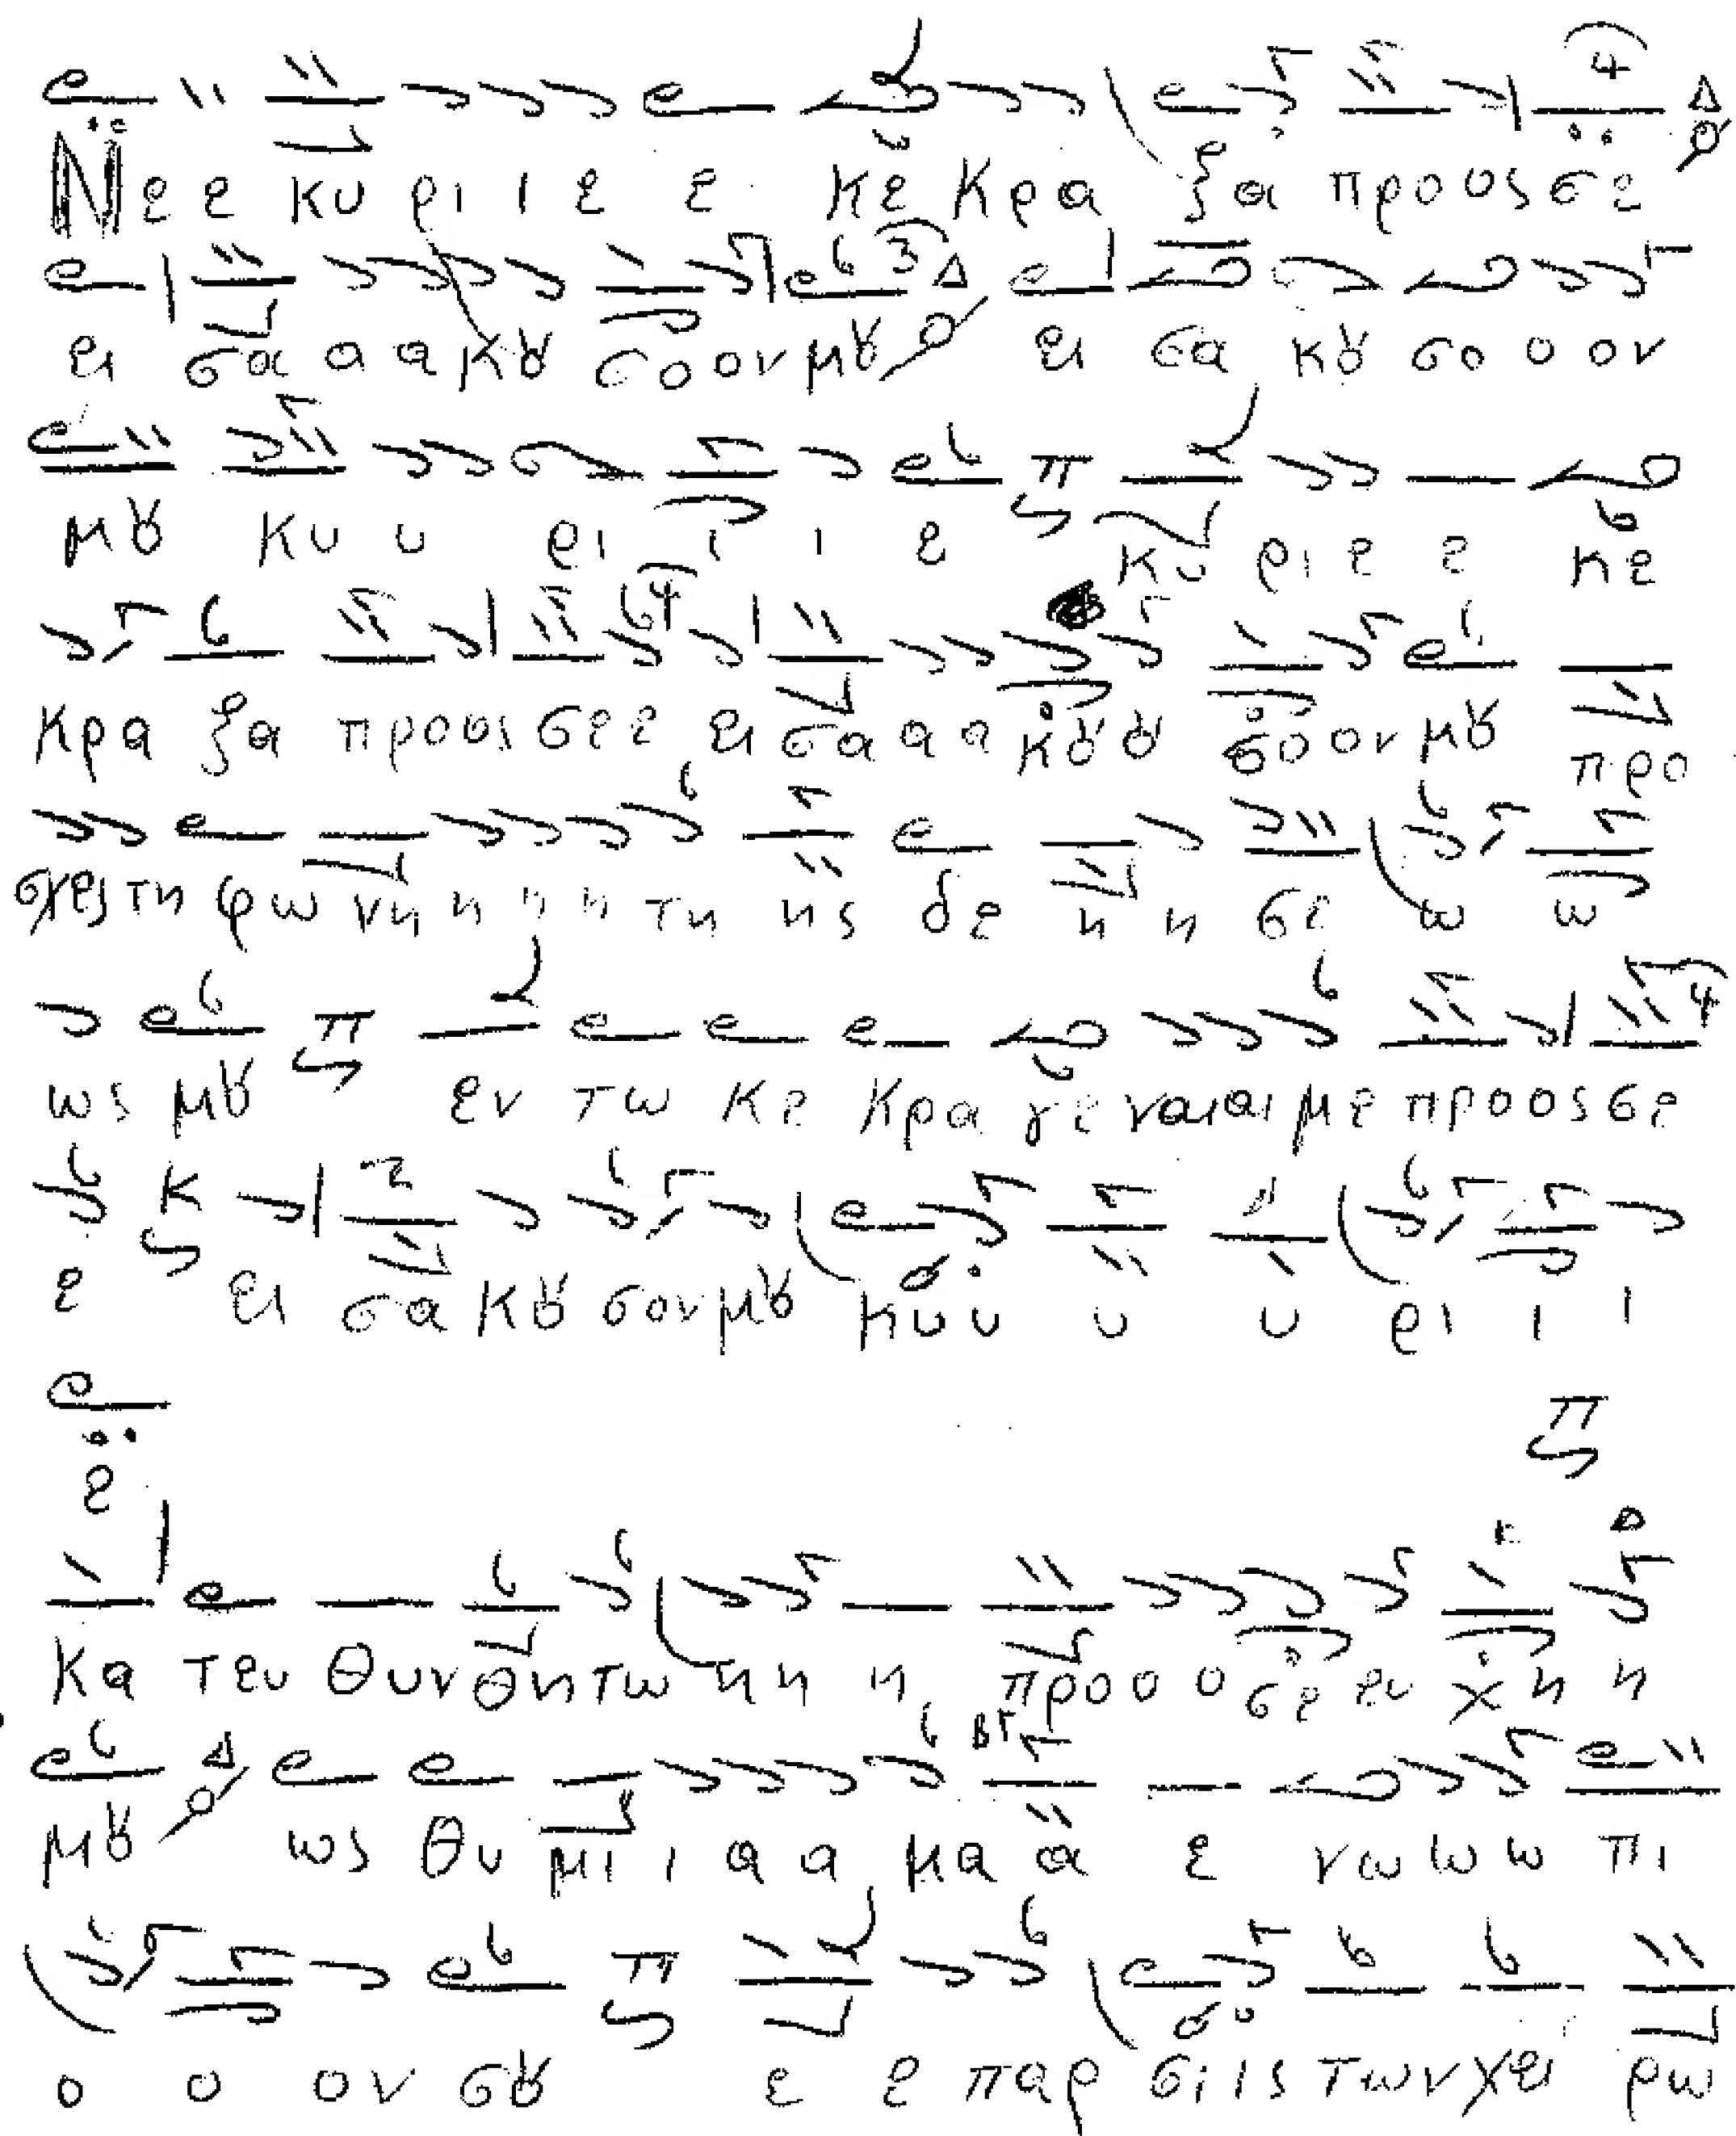 Νεε κυ ρι ι ε ε κε κρα ξα προοϛ σε
ει σα α α κȣ σο ον μȣ ει σα κȣ σο ο ον
μȣ κυ υ ρι ι ι ε κυ ρι ε ε κε
κρα ξα προοϛ σε ε ει σα α α κȣ ȣ σο ον μȣ προ
σχεϛ τη φω νη η η η τη ηϛ δε η η σε ω ω
ωϛ μȣ εν τω κε κρα γε ναι αι με προοϛ σε
ε ει σα κȣ σον μȣ κυ υ υ υ ρι ι ι
ε
Κα τευ θυν θη τω η η η προ ο ο σε ευ χη η
μȣ ωϛ θυ μι ι α α μα α ε νω ω ω πι
ο ο ον σȣ ε ε παρ σι ιϛ των χει ρω